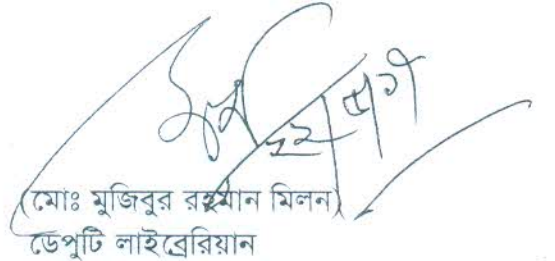 (মোঃ মুজিবুর রহমান মিলন)
ডেপুটি লাইব্রেরিয়ান